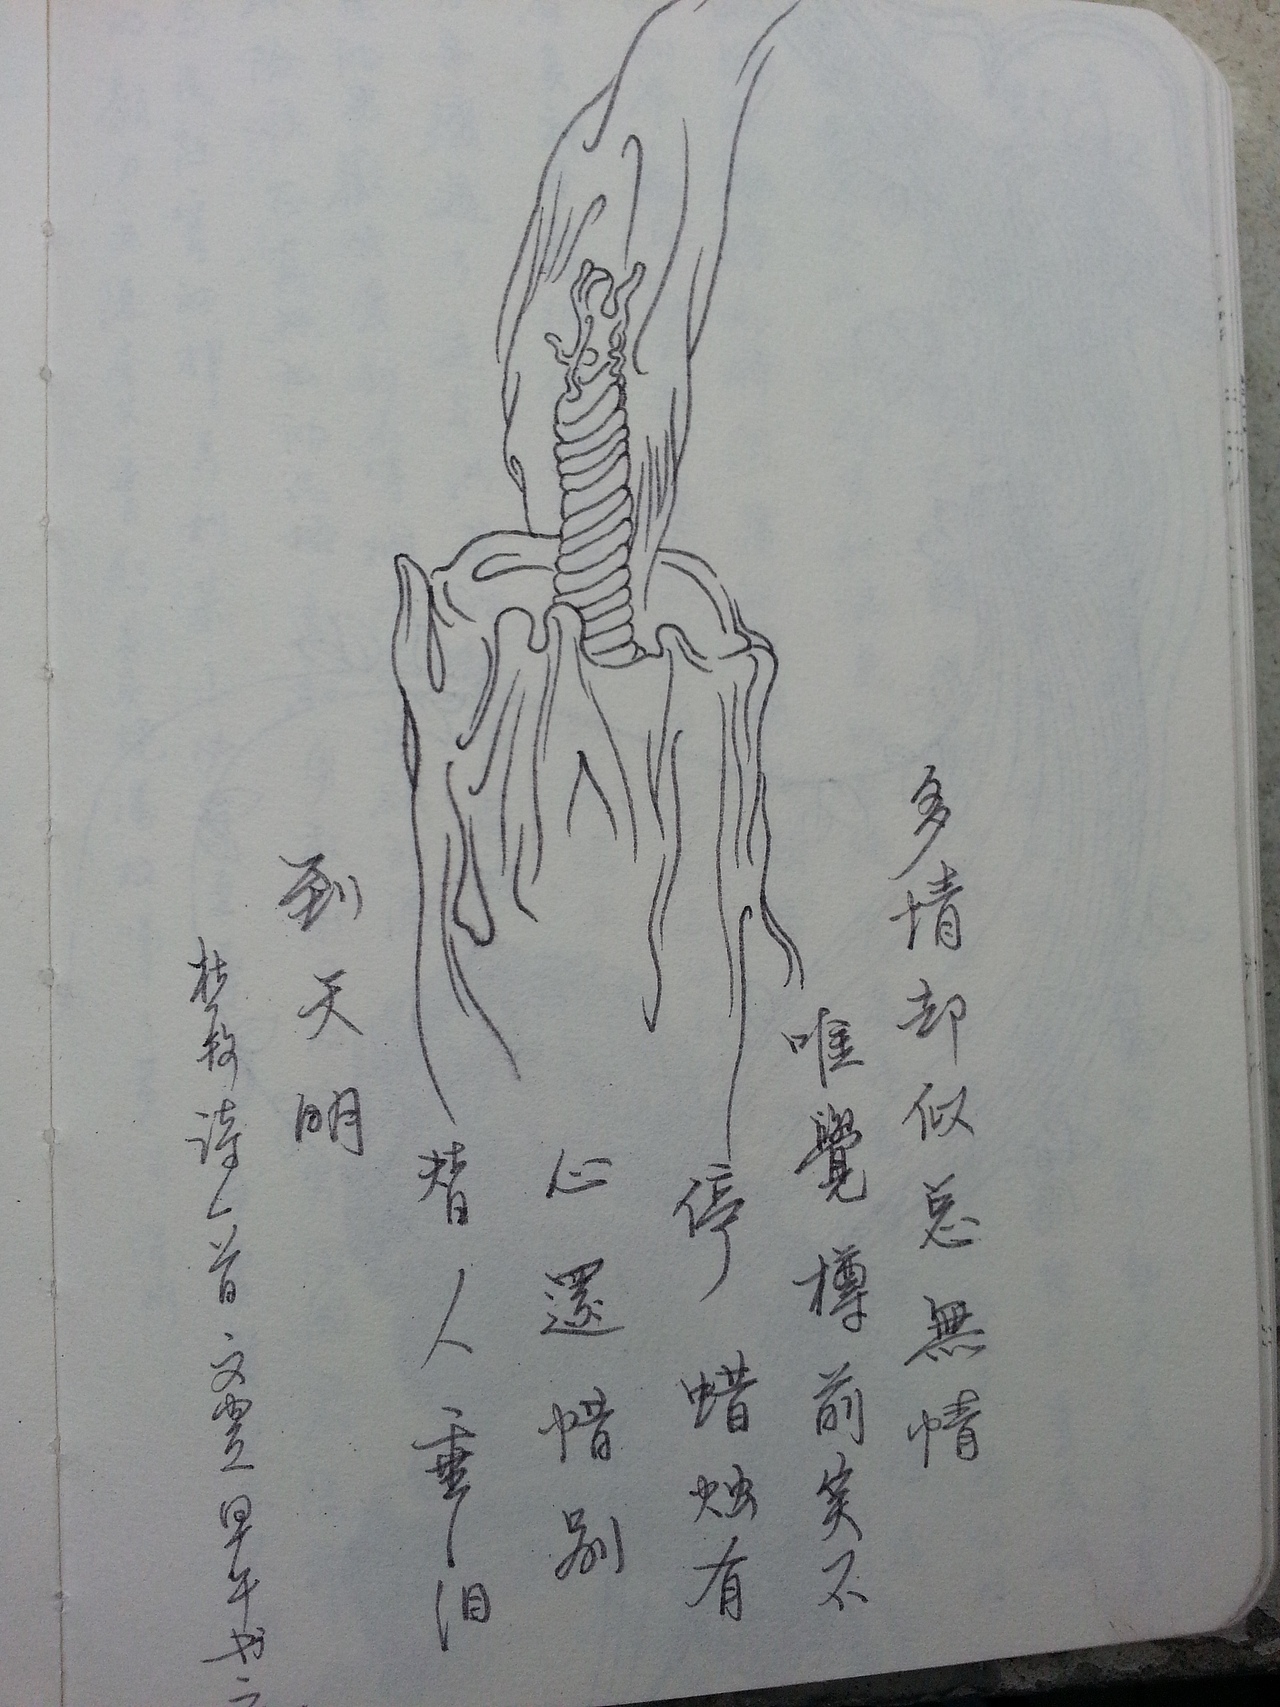 多情却似总無情
唯覺樽前笑不
停蜡烛有
心還惜别
替人垂泪
到天明
杜牧诗一首